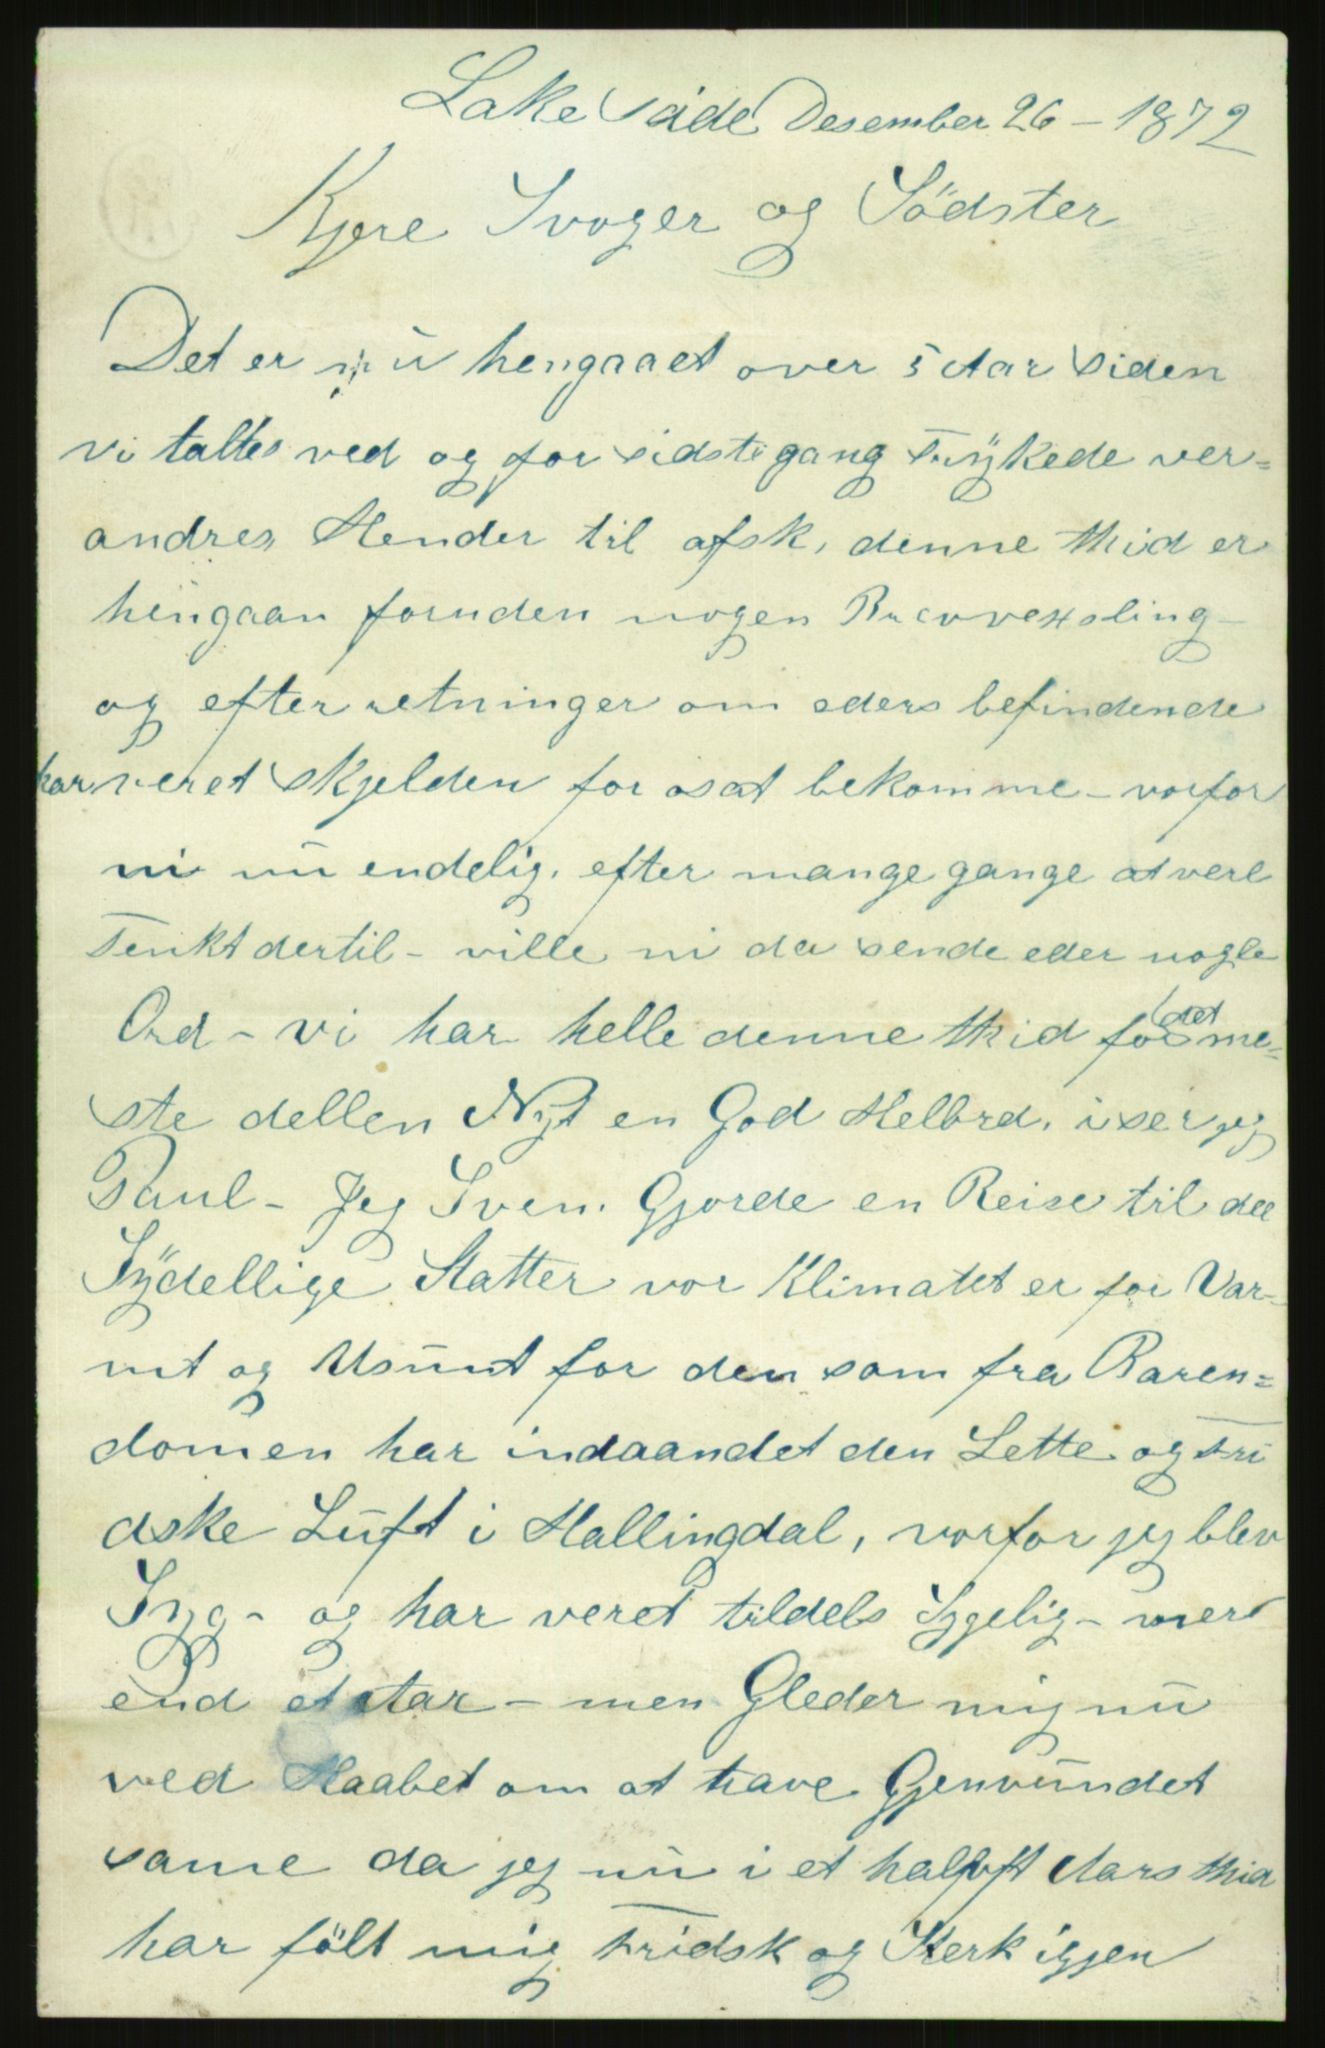 Lake side Desember 26 – 1872
Kjere Svoger og Södster
Det er nu hengaaet over 5 Aar siden
vi taltes ved og for sidste gang Trÿkede ver=
andres Hender til afsk, denne thid er
hengaan foruden nogen Brevvexsling
og efter retninger om eders befindende
har veret skjelden for os at bekomme – vorfor
vi nu endelig, efter mange gange at vere
Tenkt dertil – ville vi da sende eder nogle
Ord – vi har helle denne thid for det me=
ste dellen Nyt en God Helbrd, iser jeg
Paul – Jeg Sven. Gjorde en Reise til de
Sÿdellige Statter vor Klimatet er for Var-
mt og Usunt for den som fra Baren=
domen har indaandet den Lette og Fri
dske Luft i Hallingdal, vorfor jeg blev
Syg – og har veret tildels Sygelig – mer
end et Aar – men Gleder mig nu
ved Haabet om at have Gjenvundet
same da jeg nu i et halft Aars thid
har fölt mig Fridsk og Sterk igjen